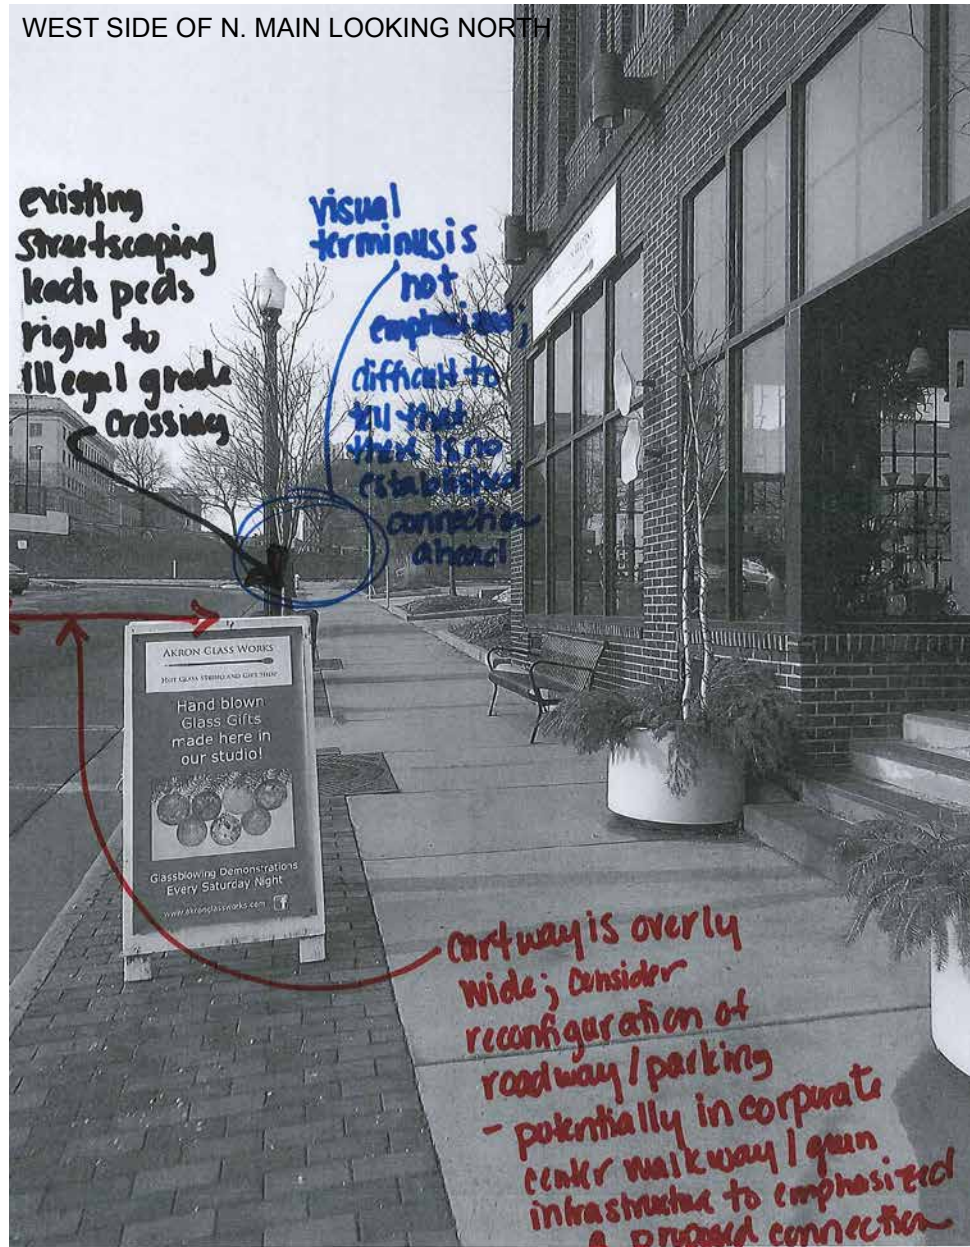 WEST SIDE OF N. MAIN LOOKING NORTH
existing
streetscaping
leads peds
right to
illegal grade
crossing
visual
terminus is
not
emphasized;
difficult to
tell that
there is no
established
connection
ahead!
AKRON GLASS WORKS
HOT GLASS STUDIO AND GIFT SHOP
Hand blown
Glass Gifts
made here in
our studio!
Glassblowing Demonstrations
Every Saturday Night
www.akronglassworks.com f
cartway is overly
wide; consider
reconfiguration of
roadway/parking
- potentially incorporate
center walkway/green
infrastructure to emphasized
a proposed connection